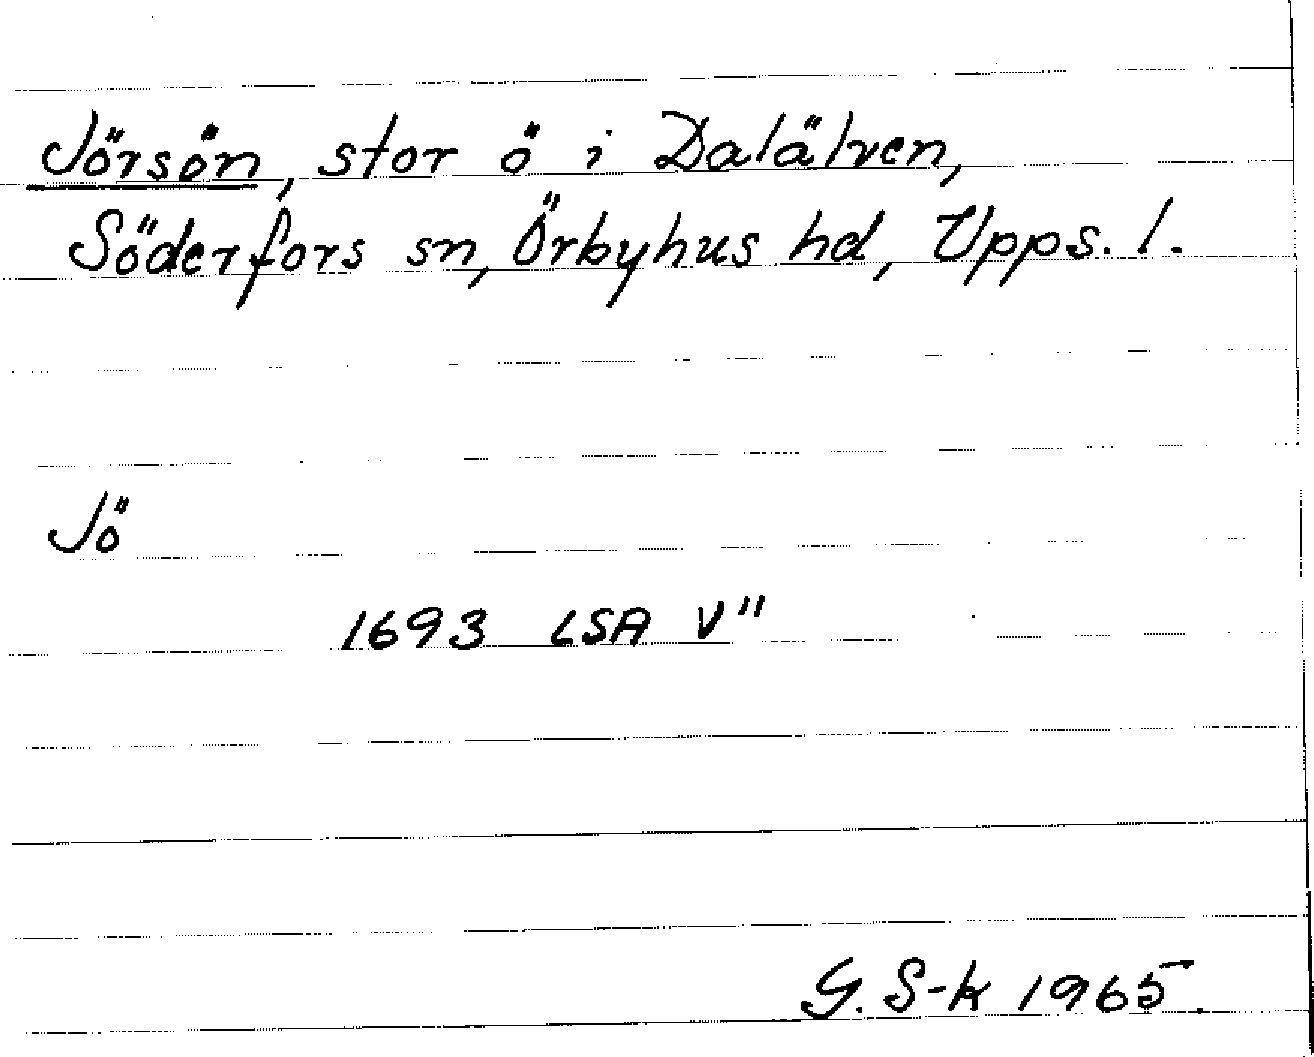 Jörsön, stor ö i Dalälven,
Söderfors sn, Örbyhus hd, Upps. l.
Jö
1693 LSA V"
G. S-k 1965.